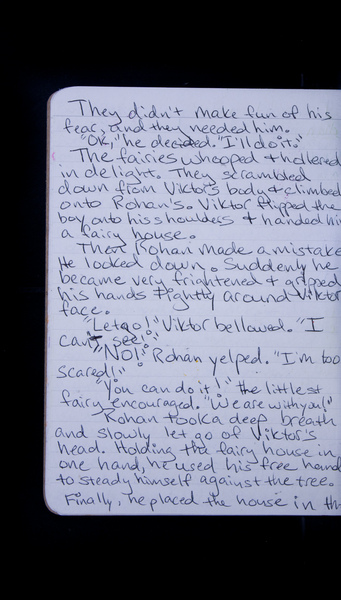 They didn't make fun of his
fear, and they needed him.
"OK," he decided. "I'll do it."
The fairies whooped & hollered
in delight. They scrambled
down from Viktor's body & climbed
onto Rohan's. Viktor flipped the
boy onto his shoulders & handed hi
a fairy house.
Then Rohan made a mistake
He looked down. Suddenly he
became very frightened & gripped
his hands tightly around Viktor
face.
"Let go!" Viktor bellowed. "I
can't see!"
"NO!" Rohan yelped. "I'm too
scared!"
"You can do it!" the littlest
fairy encouraged. "We are with you!"
Rohan took a deep breath
and slowly let go of Viktor's
head. Holding the fairy house in
one hand, he used his free hand
to steady himself against the tree.
Finally, he placed the house in th